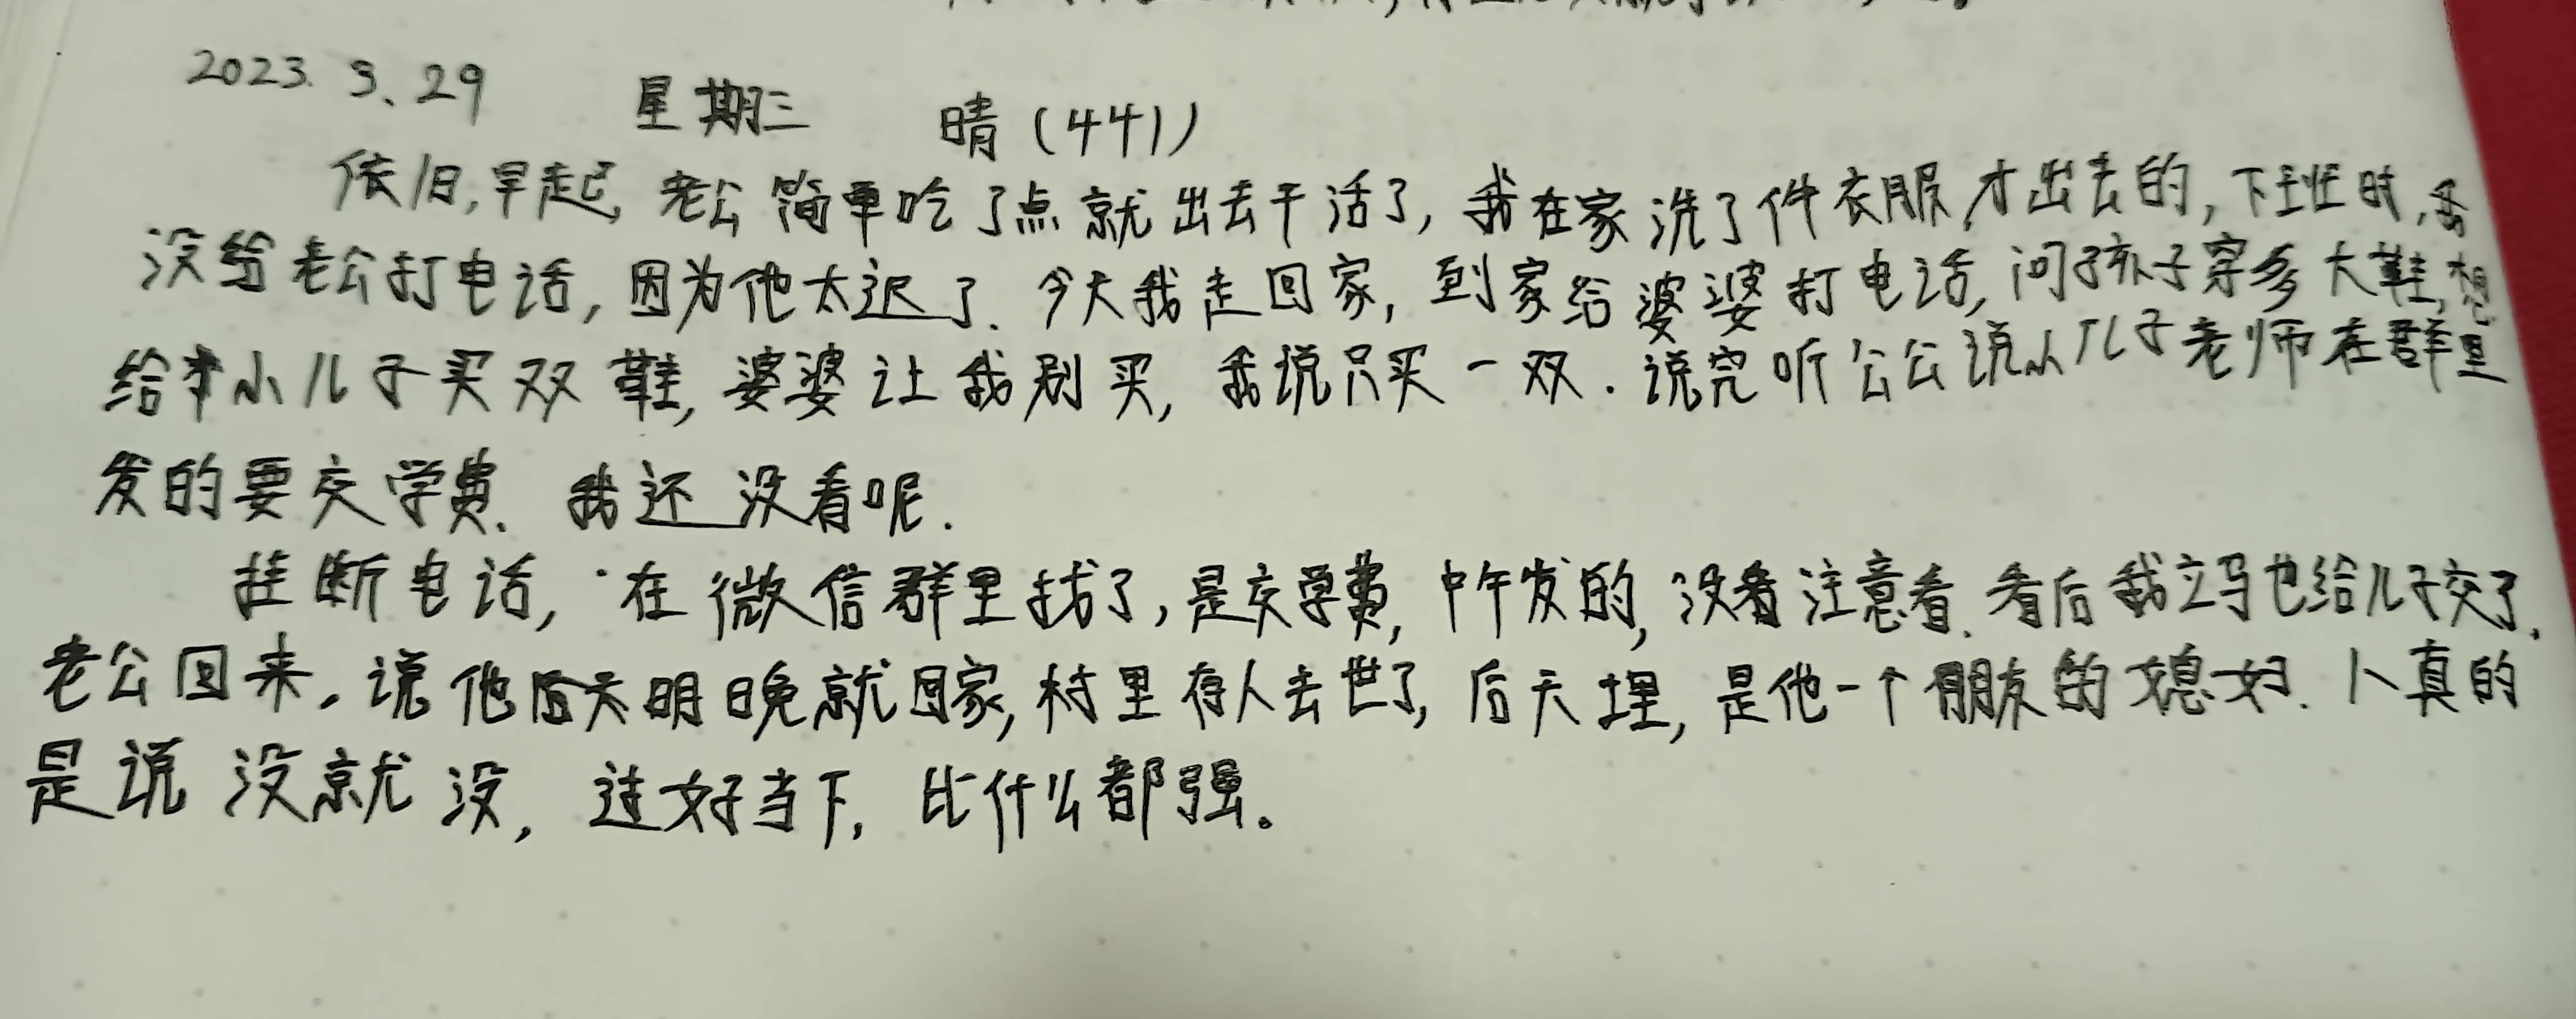 2023.3.29 星期三 晴(441)
依旧,早起,老公简单吃了点就出去干活了,我在家洗了件衣服,才出去的,下班时,我
没给老公打电话,因为他太迟了.今天我走回家,到家给婆婆打电话,问孩子穿多大鞋,想
给小儿子买双鞋,婆婆让我别买,我说只买一双.说完听公公说小儿子老师在群里
发的要交学费.我还没看呢.
挂断电话,在微信群里找了,是交学费,中午发的,没注意看.看后我立马也给儿子交了.
老公回来,说他明晚就回家,村里有人去世了,后天埋,是他一个朋友的媳妇.人真的
是说没就没,过好当下,比什么都强。